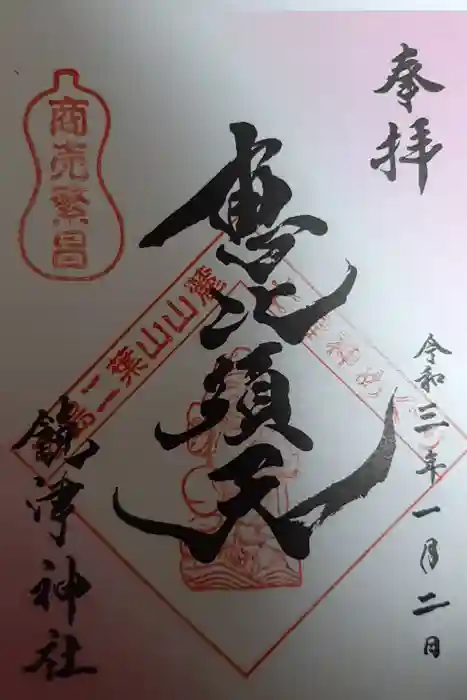 奉拝
令和三年一月二日
恵比須天
二葉山山麓
饒津神社
商売繁昌